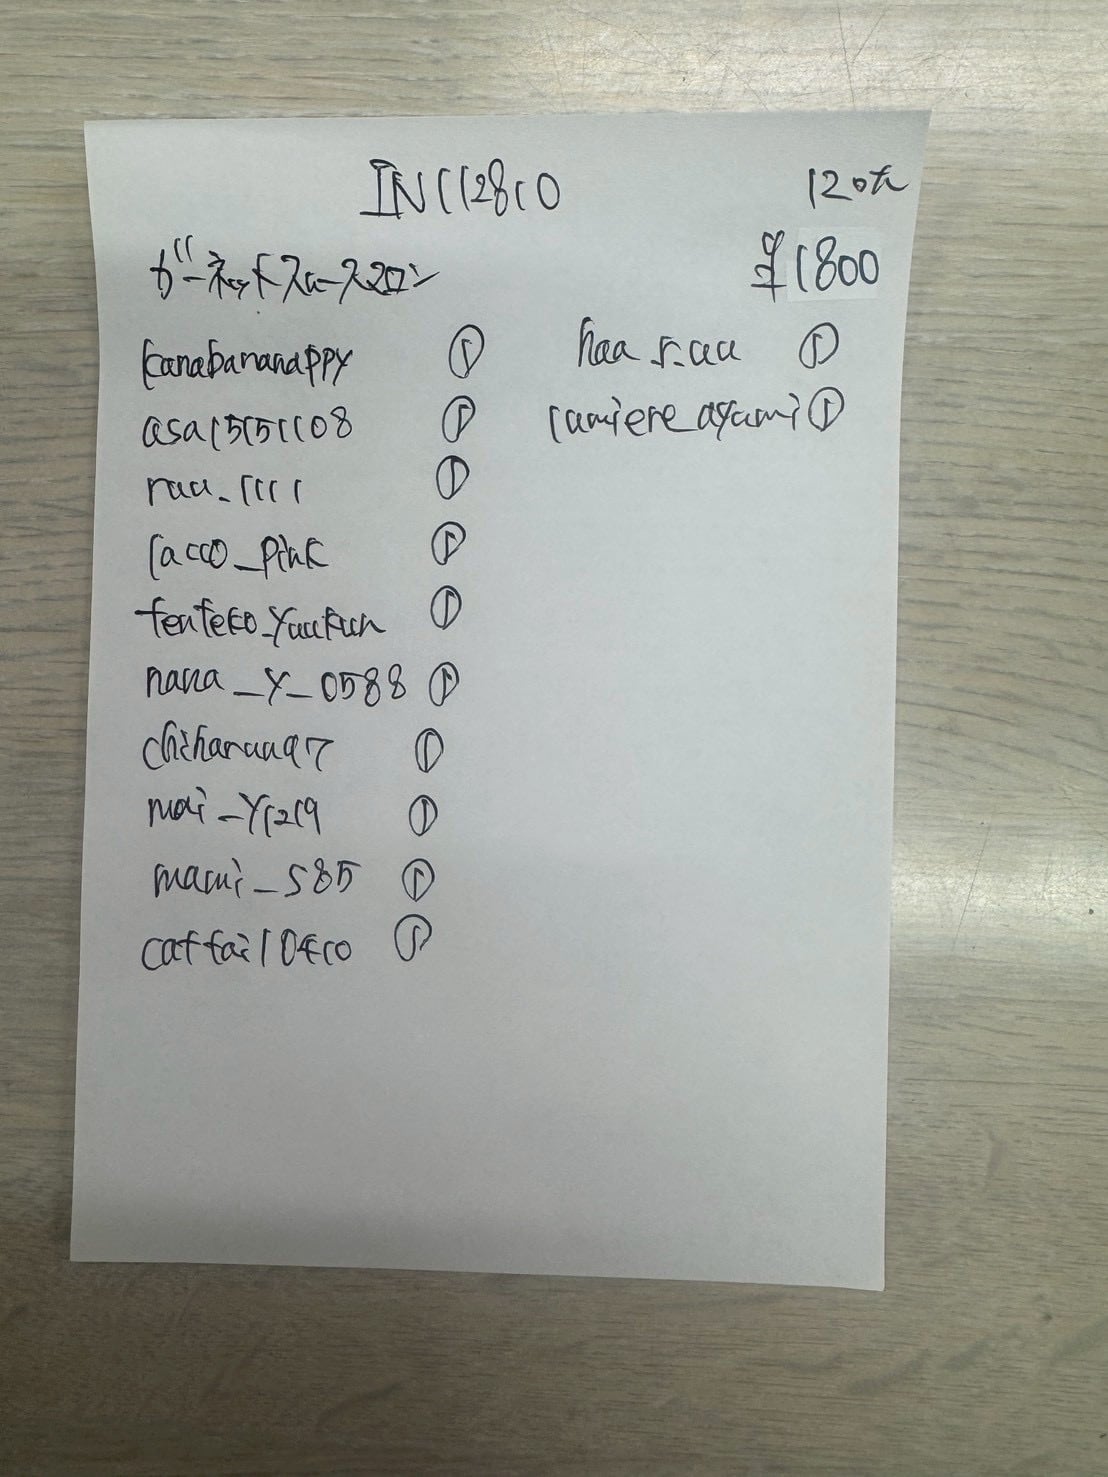 IN112810 120th
ガーネットスロースマロン ¥1800
kanabananappy ①
asa15151108 ①
ruu_1111 ①
racco_pink ①
tenteko_yuukun ①
nana_y_0588 ①
chiharuu97 ①
mai_y1219 ①
mami_s85 ①
cattail0410 ①
haa_r.uu ①
lumiere_ayumi ①